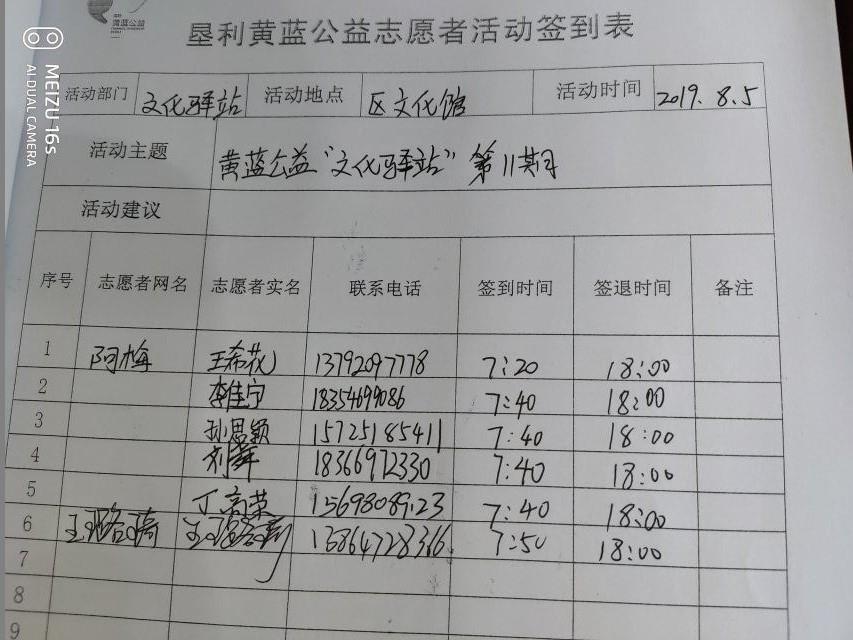 黄蓝公益
垦利黄蓝公益志愿者活动签到表
MEIZU 16s
AI DUAL CAMERA
活动部门 文化驿站 活动地点 区文化馆 活动时间 2019.8.5
活动主题 黄蓝公益"文化驿站"第11期
活动建议
序号 志愿者网名 志愿者实名 联系电话 签到时间 签退时间 备注
1 阿梅 王希花 13792097778 7:20 18:00
2 李佳宁 18354699086 7:40 18:00
3 孙思颖 15725185411 7:40 18:00
4 刘舞 18366972330 7:40 18:00
5 丁高荣 15698089123 7:40 18:00
6 王璐琦 王璐琦 13864728366 7:50 18:00
7
8
9